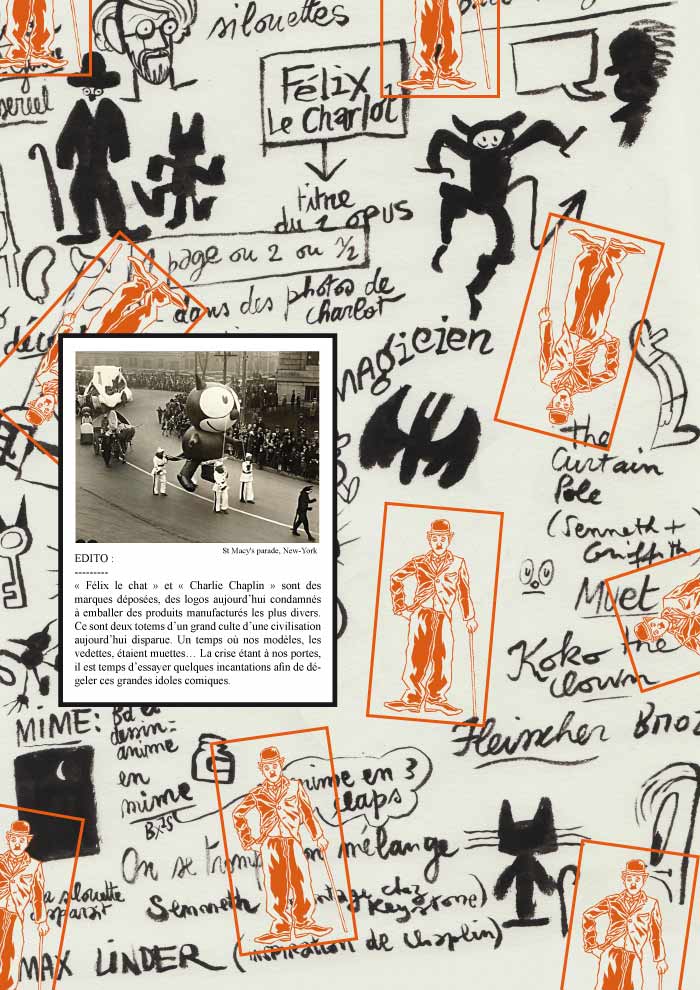 silouettes
Félix
Le Charlot
titre
du 1 opus
page ou 2 ou ½
dans des photos de
charlot
magicien
The
Curtain
Pole
(Senneth +
Griffith
Muet
Koko the
clown
Fleischer Bro
St Macy's parade, New-York
EDITO :
---------
« Félix le chat » et « Charlie Chaplin » sont des
marques déposées, des logos aujourd'hui condamnés
à emballer des produits manufacturés les plus divers.
Ce sont deux totems d'un grand culte d'une civilisation
aujourd'hui disparue. Un temps où nos modèles, les
vedettes, étaient muettes... La crise étant à nos portes,
il est temps d'essayer quelques incantations afin de dé-
geler ces grandes idoles comiques.
MIME: Bd et
dessin-
animé
en
mime
mime en 3
claps
On se tromp on mélange
la silouette
Senneth ntage chez
Keystone)
MAX LINDER (inspiration de chaplin)